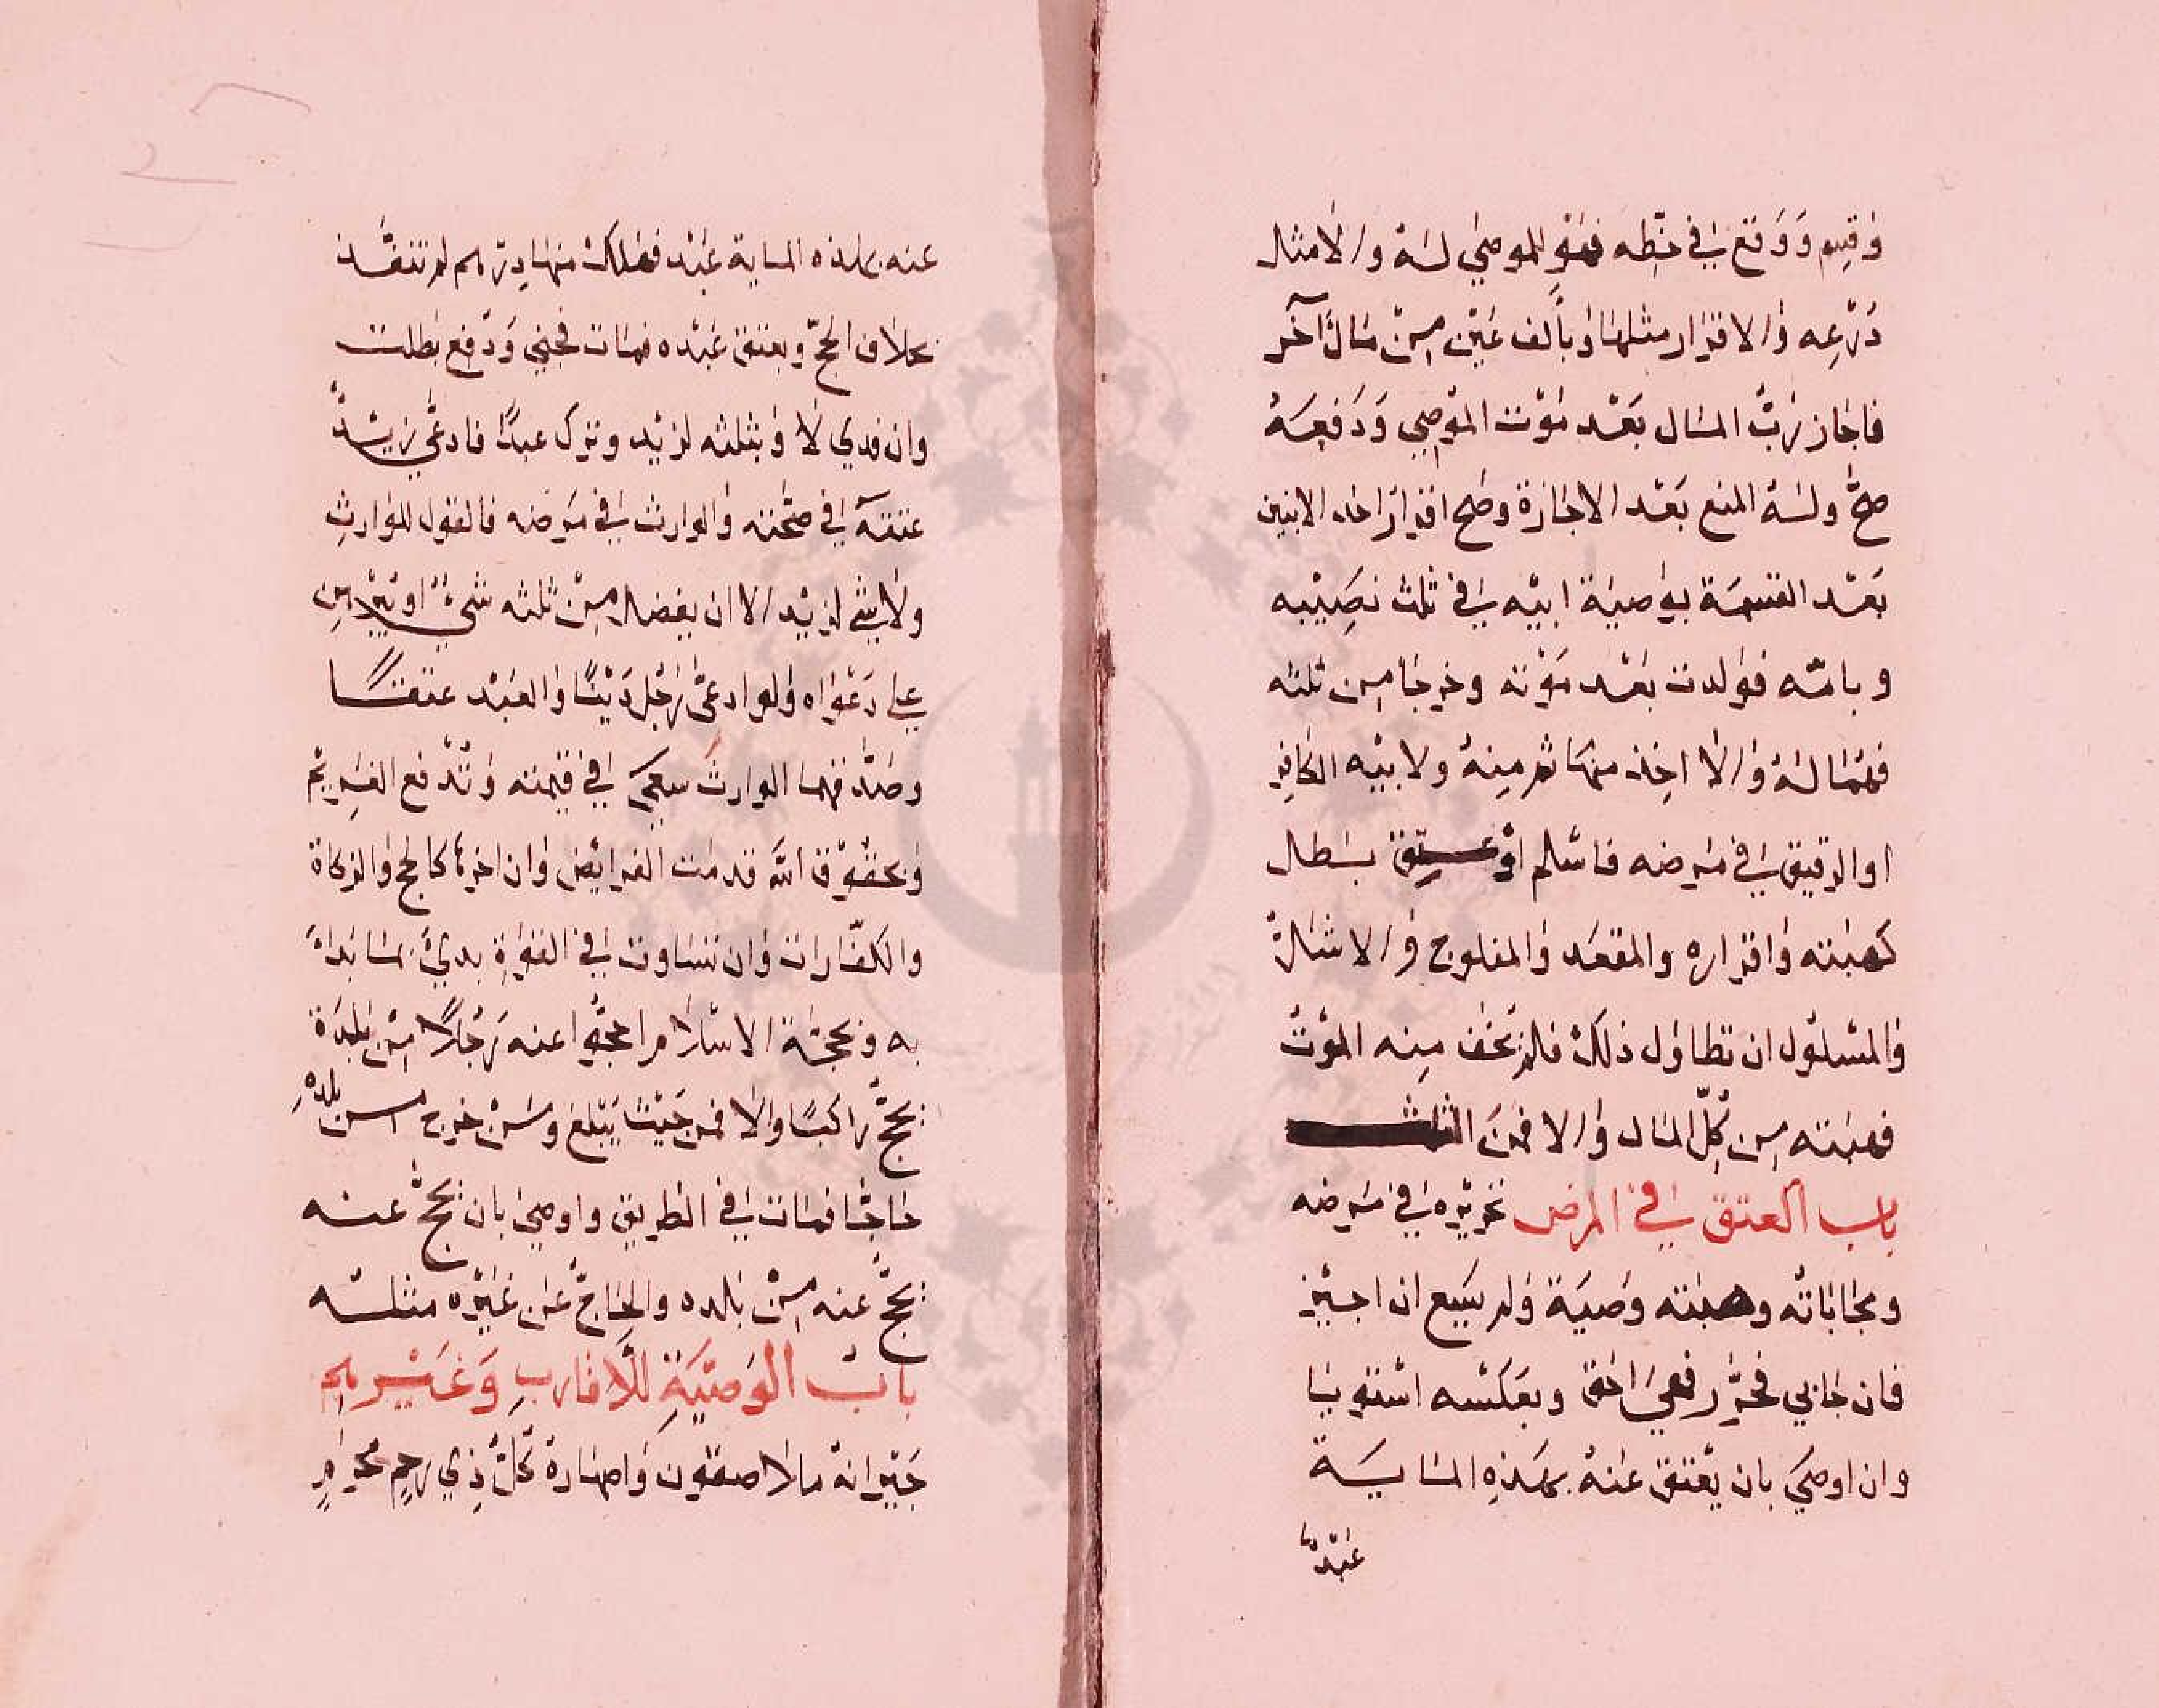 وقسم ووقع في حظه فهو للموصى له والا مثل
ذرعه والاقرار مثلها وبألف عين من مال آخر
فاجاز رب المال بعد موت الموصي ودفعه
صح وله المنع بعد الاجازة وصح اقرار احد الابنين
بعد القسمة بوصية ابيه في ثلث نصيبه
وبامة فولدت بعد موته وخرجا من ثلثه
فهما له والا اخذ منها ثم منه ولابنه الكافر
او الرقيق في مرضه فاسلم او عتق بطل
كهبته واقراره والمقعد والمفلوج والاشل
والمسلول ان تطاول ذلك فلم يخف منه الموت
فهبته من كل المال والا فمن الثلث
باب العتق في المرض تحريره في مرضه
ومحاباته وهبته وصية ولم يسع ان اجيز
فان حابى فحرر فهي احق وبعكسه استويا
وان اوصى بان يعتق عنه بهذه الماية
عبد
عنه بهذه الماية عبد فهلك منها درهم لم تنفذ
بخلاف الحج وبعتق عبده فمات فجنى ودفع بطلت
وان فدي لا وبثلثه لزيد وترك عبدا فادعى زيد
عتقه في صحته والوارث في مرضه فالقول للوارث
ولا شي لزيد الا ان يفضل من ثلثه شيء او يبرهن
على دعواه ولو ادعى رجل دينا والعبد عتقا
وصدقهما الوارث سعى في قيمته وتدفع الغريم
وبحقوق الله قدمت الفرايض وان اخرها كالحج والزكاة
والكفارات وان تساوت في القوة بدئ بما بدا
به وبحجة الاسلام احجوا عنه رجلا من بلده
يحج راكبا والا فمن حيث يبلغ ومن خرج من بلده
حاجا فمات في الطريق واوصى بان يحج عنه
يحج عنه من بلده والحاج عن غيره مثله
باب الوصية للاقارب وغيرهم
جيرانه ملاصقون واصهاره كل ذي رحم محرم